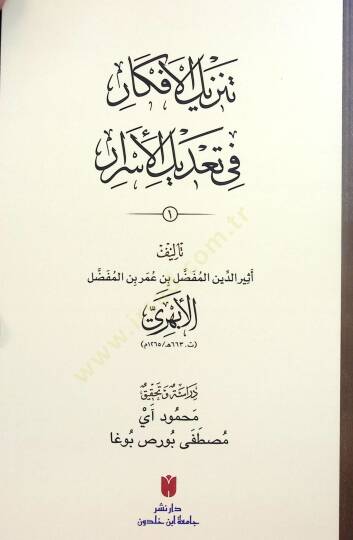 تنزيل الأفكار
في تعديل الأسرار
١
تأليف
أثير الدين المُفضَّل بن عُمر بن المُفضَّل
الأبهريّ
(ت. ٦٦٣هـ/١٢٦٥م)
دراسة وتحقيق
محمُود آي
مُصطفَى بُورص بُوغا
دار نشر
جامعة ابن خلدون